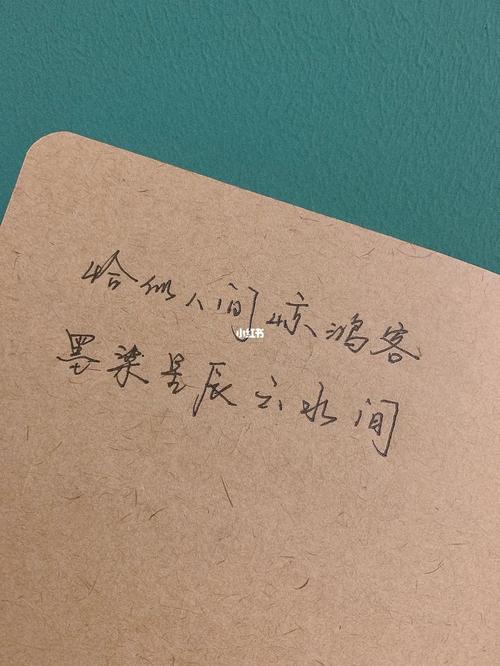 恰似人间惊鸿客
墨染星辰云水间
小红书